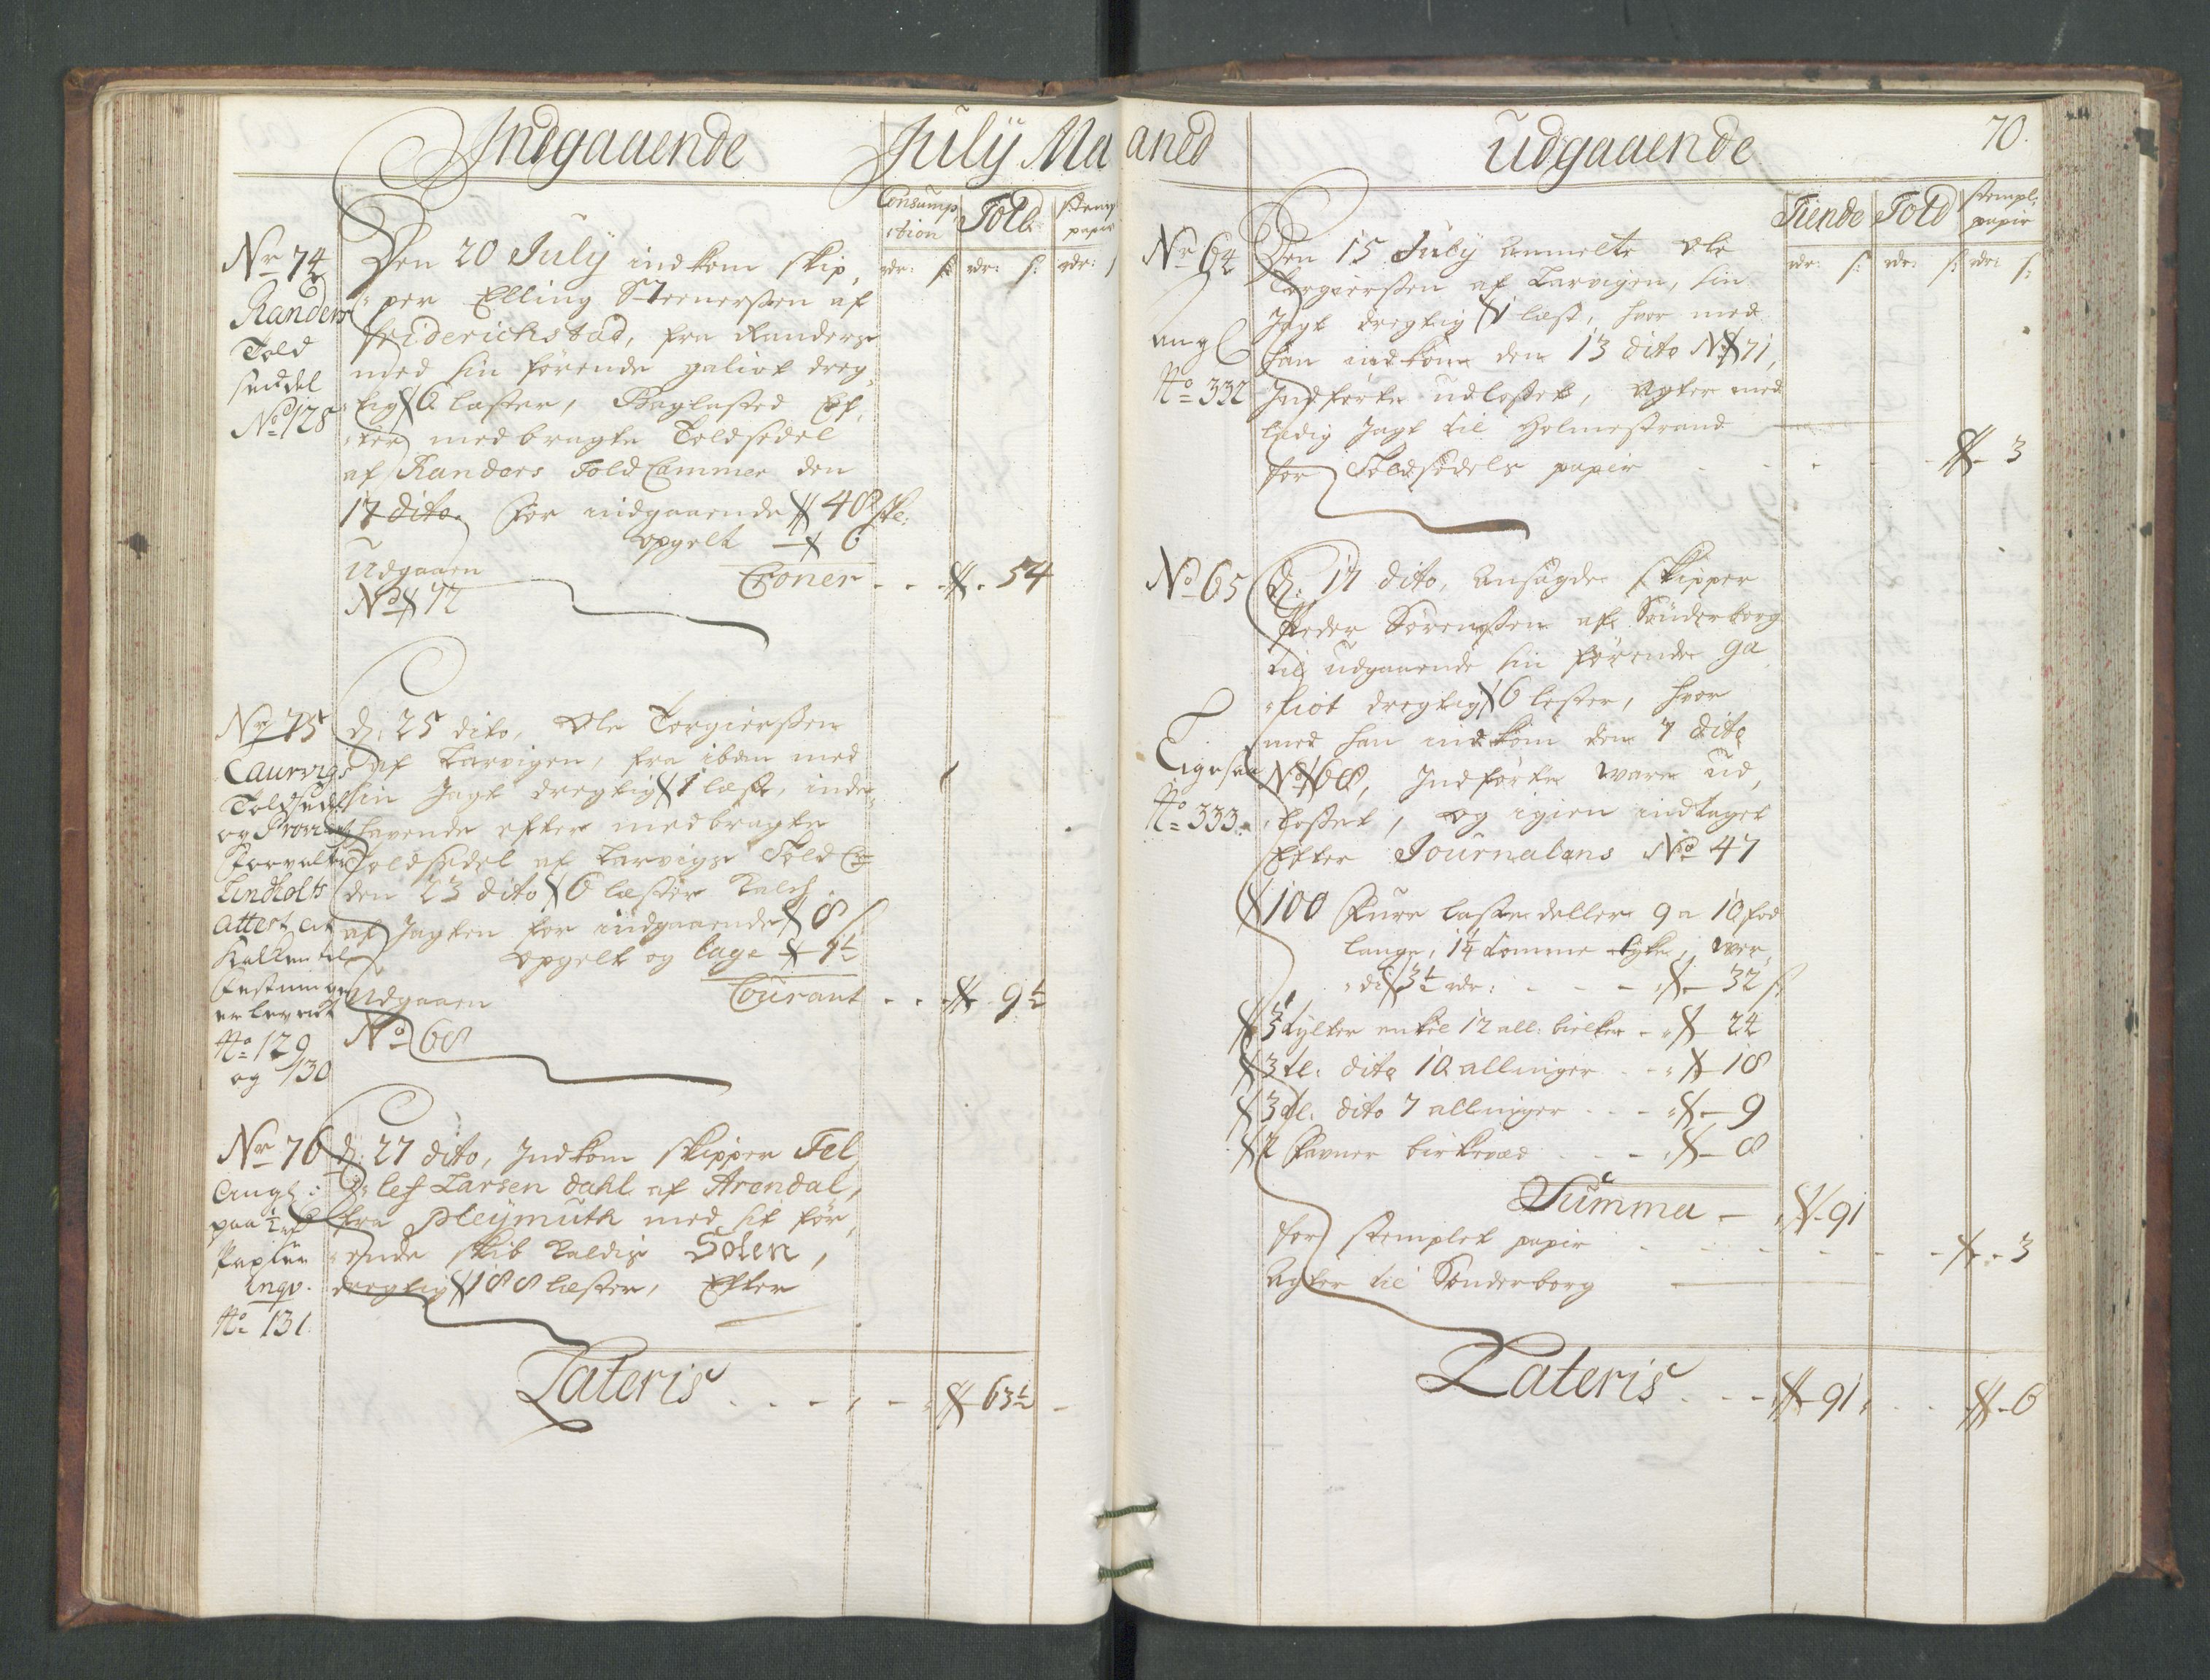 Indgaaende July Maaned udgaaende 70.
Consump,
,,ction
Told
Stempl,
papir
rdr: s: rdr: s: rdr:
Nr 74
Randers
Told
seddel
No 128
Den 20 July indkom skip,
,,per Elling Steenersen af
friderichstad, fra Randers
med sin förende galiot dreg,
,,tig 6 læster, Baglasted Ef,
,,ter medbragte Toldsedel
af Randers Told Cammer den
17 dito. for indgaaende 48 sk:
opgelt 6
Udgaaen Croner - - - 54
No 72
Nr 75
Laurvigs
Toldsedel
og Proviant
forvalter
Lindholts
attest at
Kalken til
festningen
er leveret
No 129
og 130
d: 25 dito, Ole Torgiersen
af Larvigen, fra ibdm med
sin Jagt dregtig 1 læst, inde,
havende efter medbragte
Toldsedel af Larvigs Told C
den 23 dito 6 læster Kalch
af Jagten for indgaaende 8 s
opgelt og lage 1½
Udgaaen Courant - - - 9½
No 68
Nr 76
Angl:
paa ½ rdr
Papiir
No 131.
d: 27 dito, Indkom skipper Tel,
,,lef Larsen dahl af Arendal,
fra Pleymuth med sit för,
,,ende skib kaldis Solen,
dregtig 188 læster, Efter
Lateris - - - 63½
Tiende Told Stempl,
papir
rdr: s: rdr: s: rdr: s:
Nr 64
angl
No 332
Den 15 July anmelte Ole
Torgiersen af Larvigen, sin
Jagt dregtig 1 læst, hvor med
han indkom den 13 dito No 71,
Indförte udlosset, agter med
ledig Jagt til Holmestrand
for Toldsedels papir - - - 3
No 65
Ligesaa
No 333.
d: 17 dito, ansagde skipper
Peder Sörensen af Sönderborg
til udgaaende sin förende ga,
,,liot dregtig 6 lester, hvor
med han indkom den 7 dito
No 68, Indförte ware ud,
,,losset, og igien indtaget
Efter Journalens No 47
100 Fure laste deller 9 a 10 fod
lange, 1¼ tomme tyke, wer,
,,di 3½ rdr: - - - 32 s:
3 tylter enkel 12 all: bielker - 24
3 tl: dito 10 allinger - - 18
3 tl: dito 7 allinger - - - 9
2 favner birkeved - - - 8
Summa - 91
for stemplet papir - - - 3
Agter til Sönderborg
Lateris - - - 91 - - 6